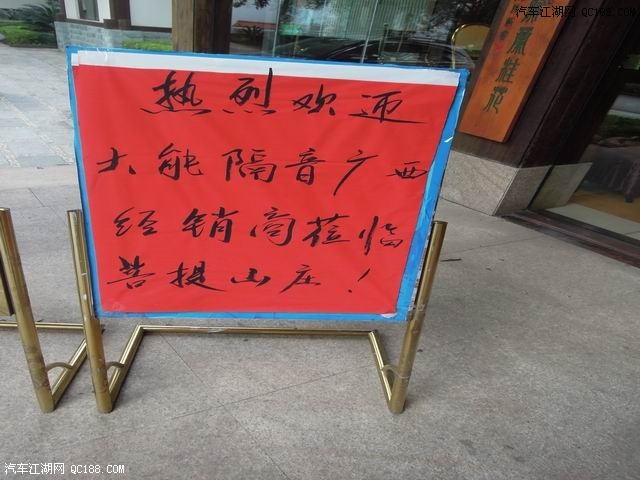 汽车江湖网 QC188.COM
热烈欢迎
大能隔音广西
经销商莅临
菩提山庄！
汽车江湖网 QC188.COM